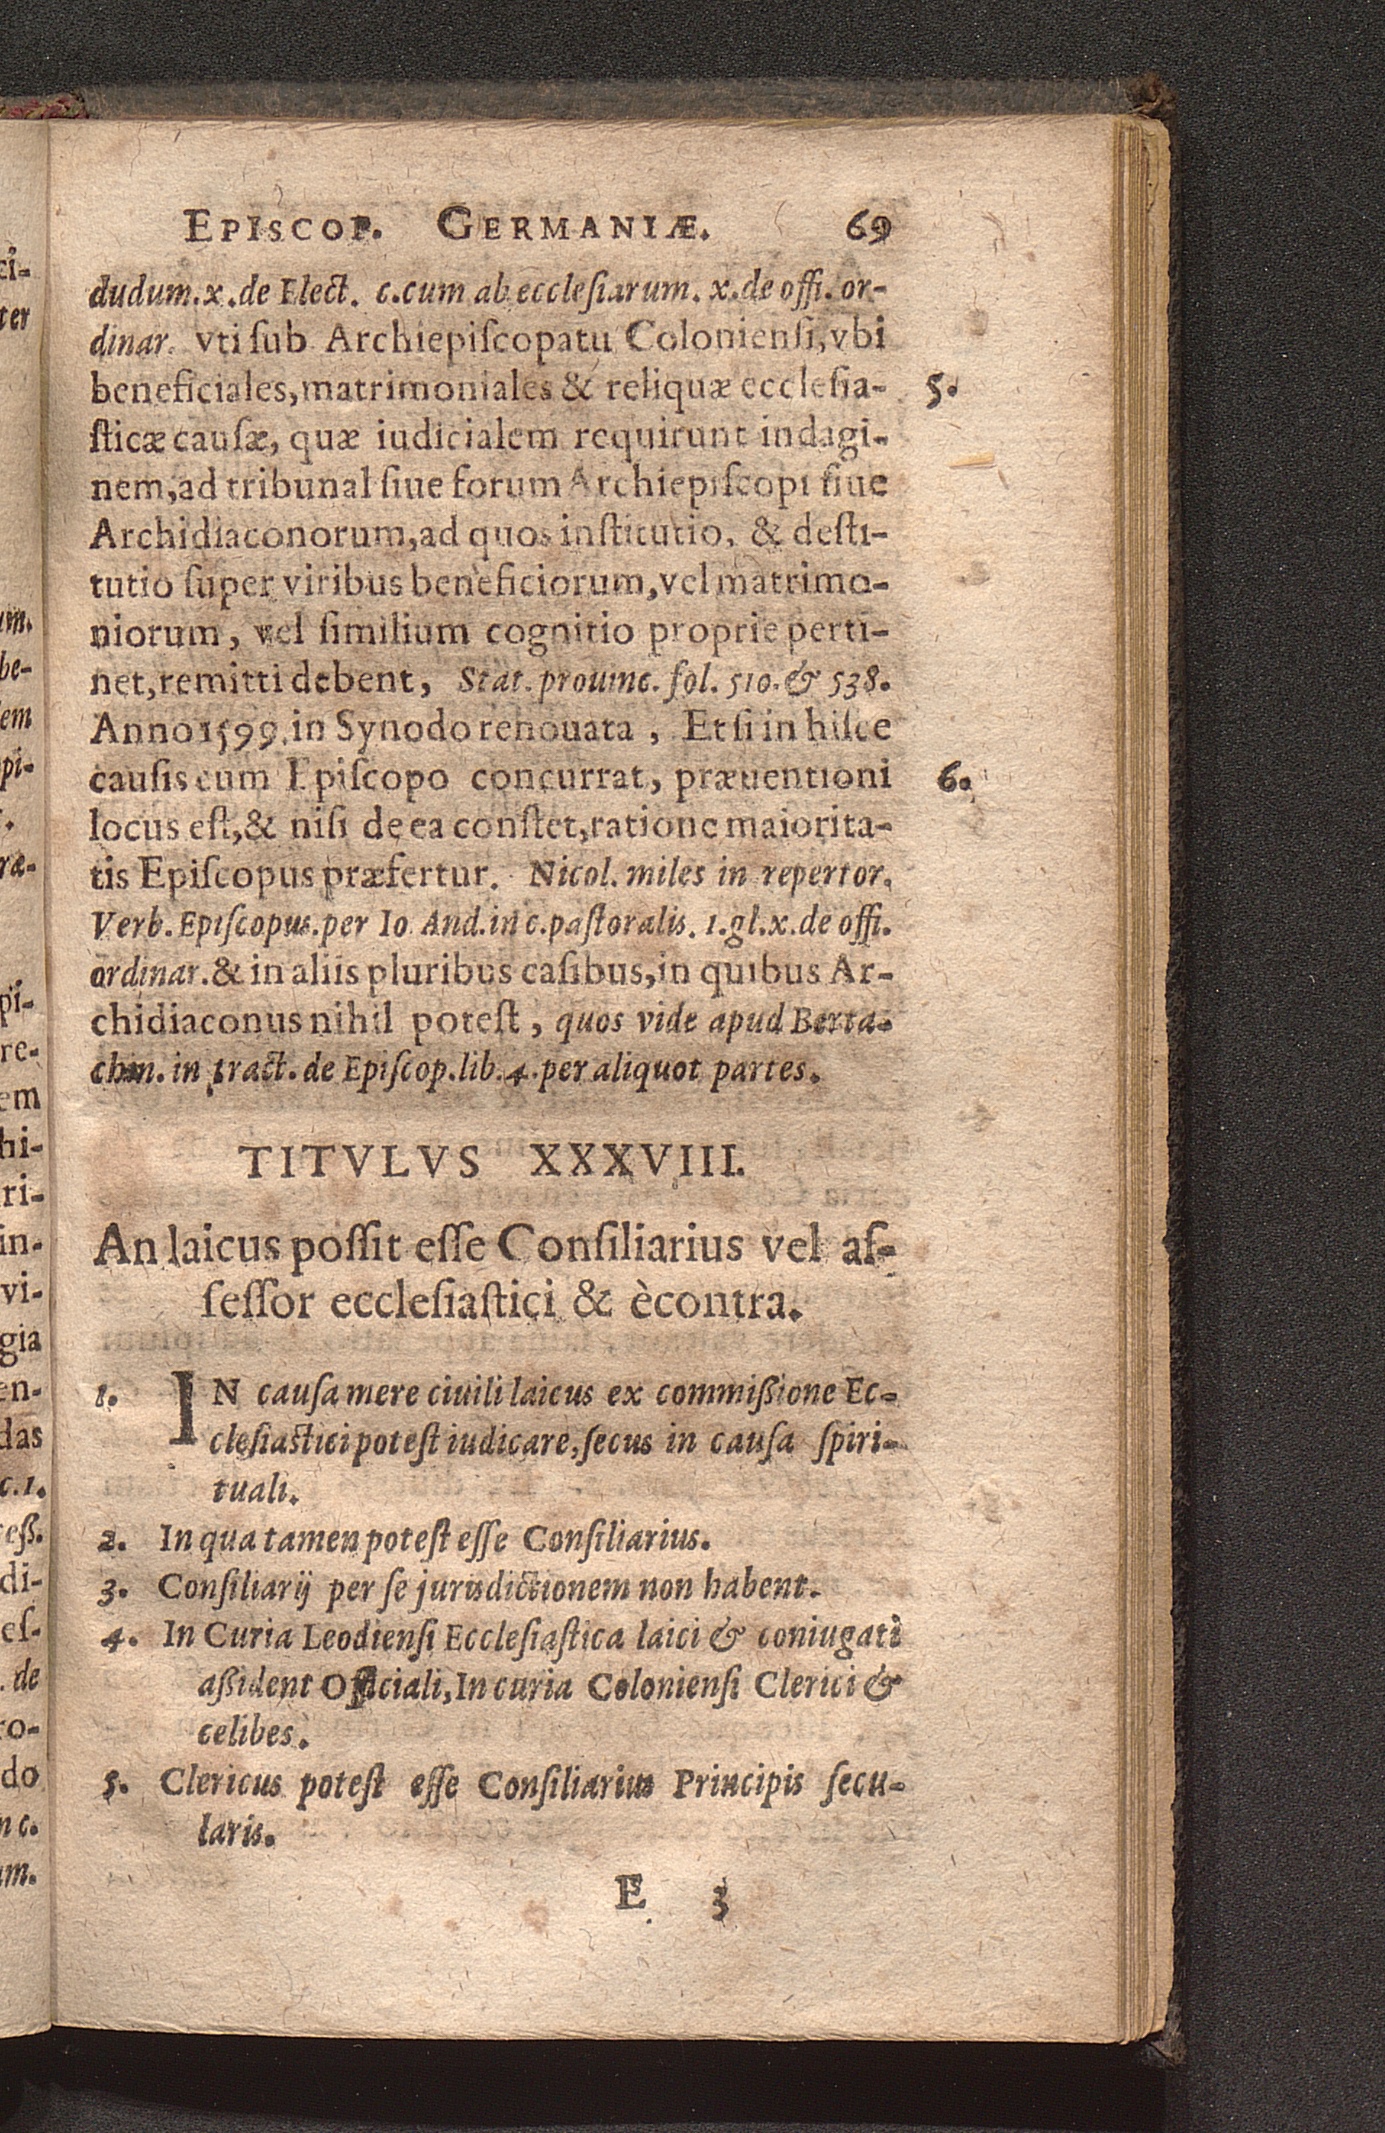 EPISCOP. GERMANIÆ. 69
dudum.x.de Elect. c.cum ab ecclesiarum. x.de offi. or-
dinar. vti ſub Archiepiſcopatu Colonienſi, vbi
beneficiales, matrimoniales & reliquæ eccleſia- 5.
ſticæ cauſæ, quæ iudicialem requirunt indagi-
nem, ad tribunal ſiue forum Archiepiſcopi ſiue
Archidiaconorum, ad quos inſtitutio, & deſti-
tutio ſuper viribus beneficiorum, vel matrimo-
niorum, vel ſimilium cognitio proprie perti-
net, remitti debent, Stat. prouinc. fol. 510. & 538.
Anno 1599. in Synodo renouata, Et ſi in hiſce
cauſis cum Epiſcopo concurrat, præuentioni 6.
locus eſt, & niſi de ea conſtet, ratione maiorita-
tis Epiſcopus præfertur. Nicol. miles in repertor.
Verb. Epiſcopus. per Io And. in c. paſtoralis. 1. gl. x. de offi.
ordinar. & in aliis pluribus caſibus, in quibus Ar-
chidiaconus nihil poteſt, quos vide apud Berta-
chin. in tract. de Epiſcop. lib. 4. per aliquot partes.
TITVLVS XXXVIII.
An laicus poſſit eſſe Conſiliarius vel aſ-
ſeſſor eccleſiaſtici & ècontra.
1. IN cauſa mere ciuili laicus ex commißione Ec-
cleſiaſtici poteſt iudicare, ſecus in cauſa ſpiri-
tuali.
2. In qua tamen poteſt eſſe Conſiliarius.
3. Conſiliarij per ſe jurisdictionem non habent.
4. In Curia Leodienſi Eccleſiaſtica laici & coniugati
aßident Officiali, In curia Colonienſi Clerici &
celibes.
5. Clericus poteſt eſſe Conſiliarius Principis ſecu-
laris.
E 3